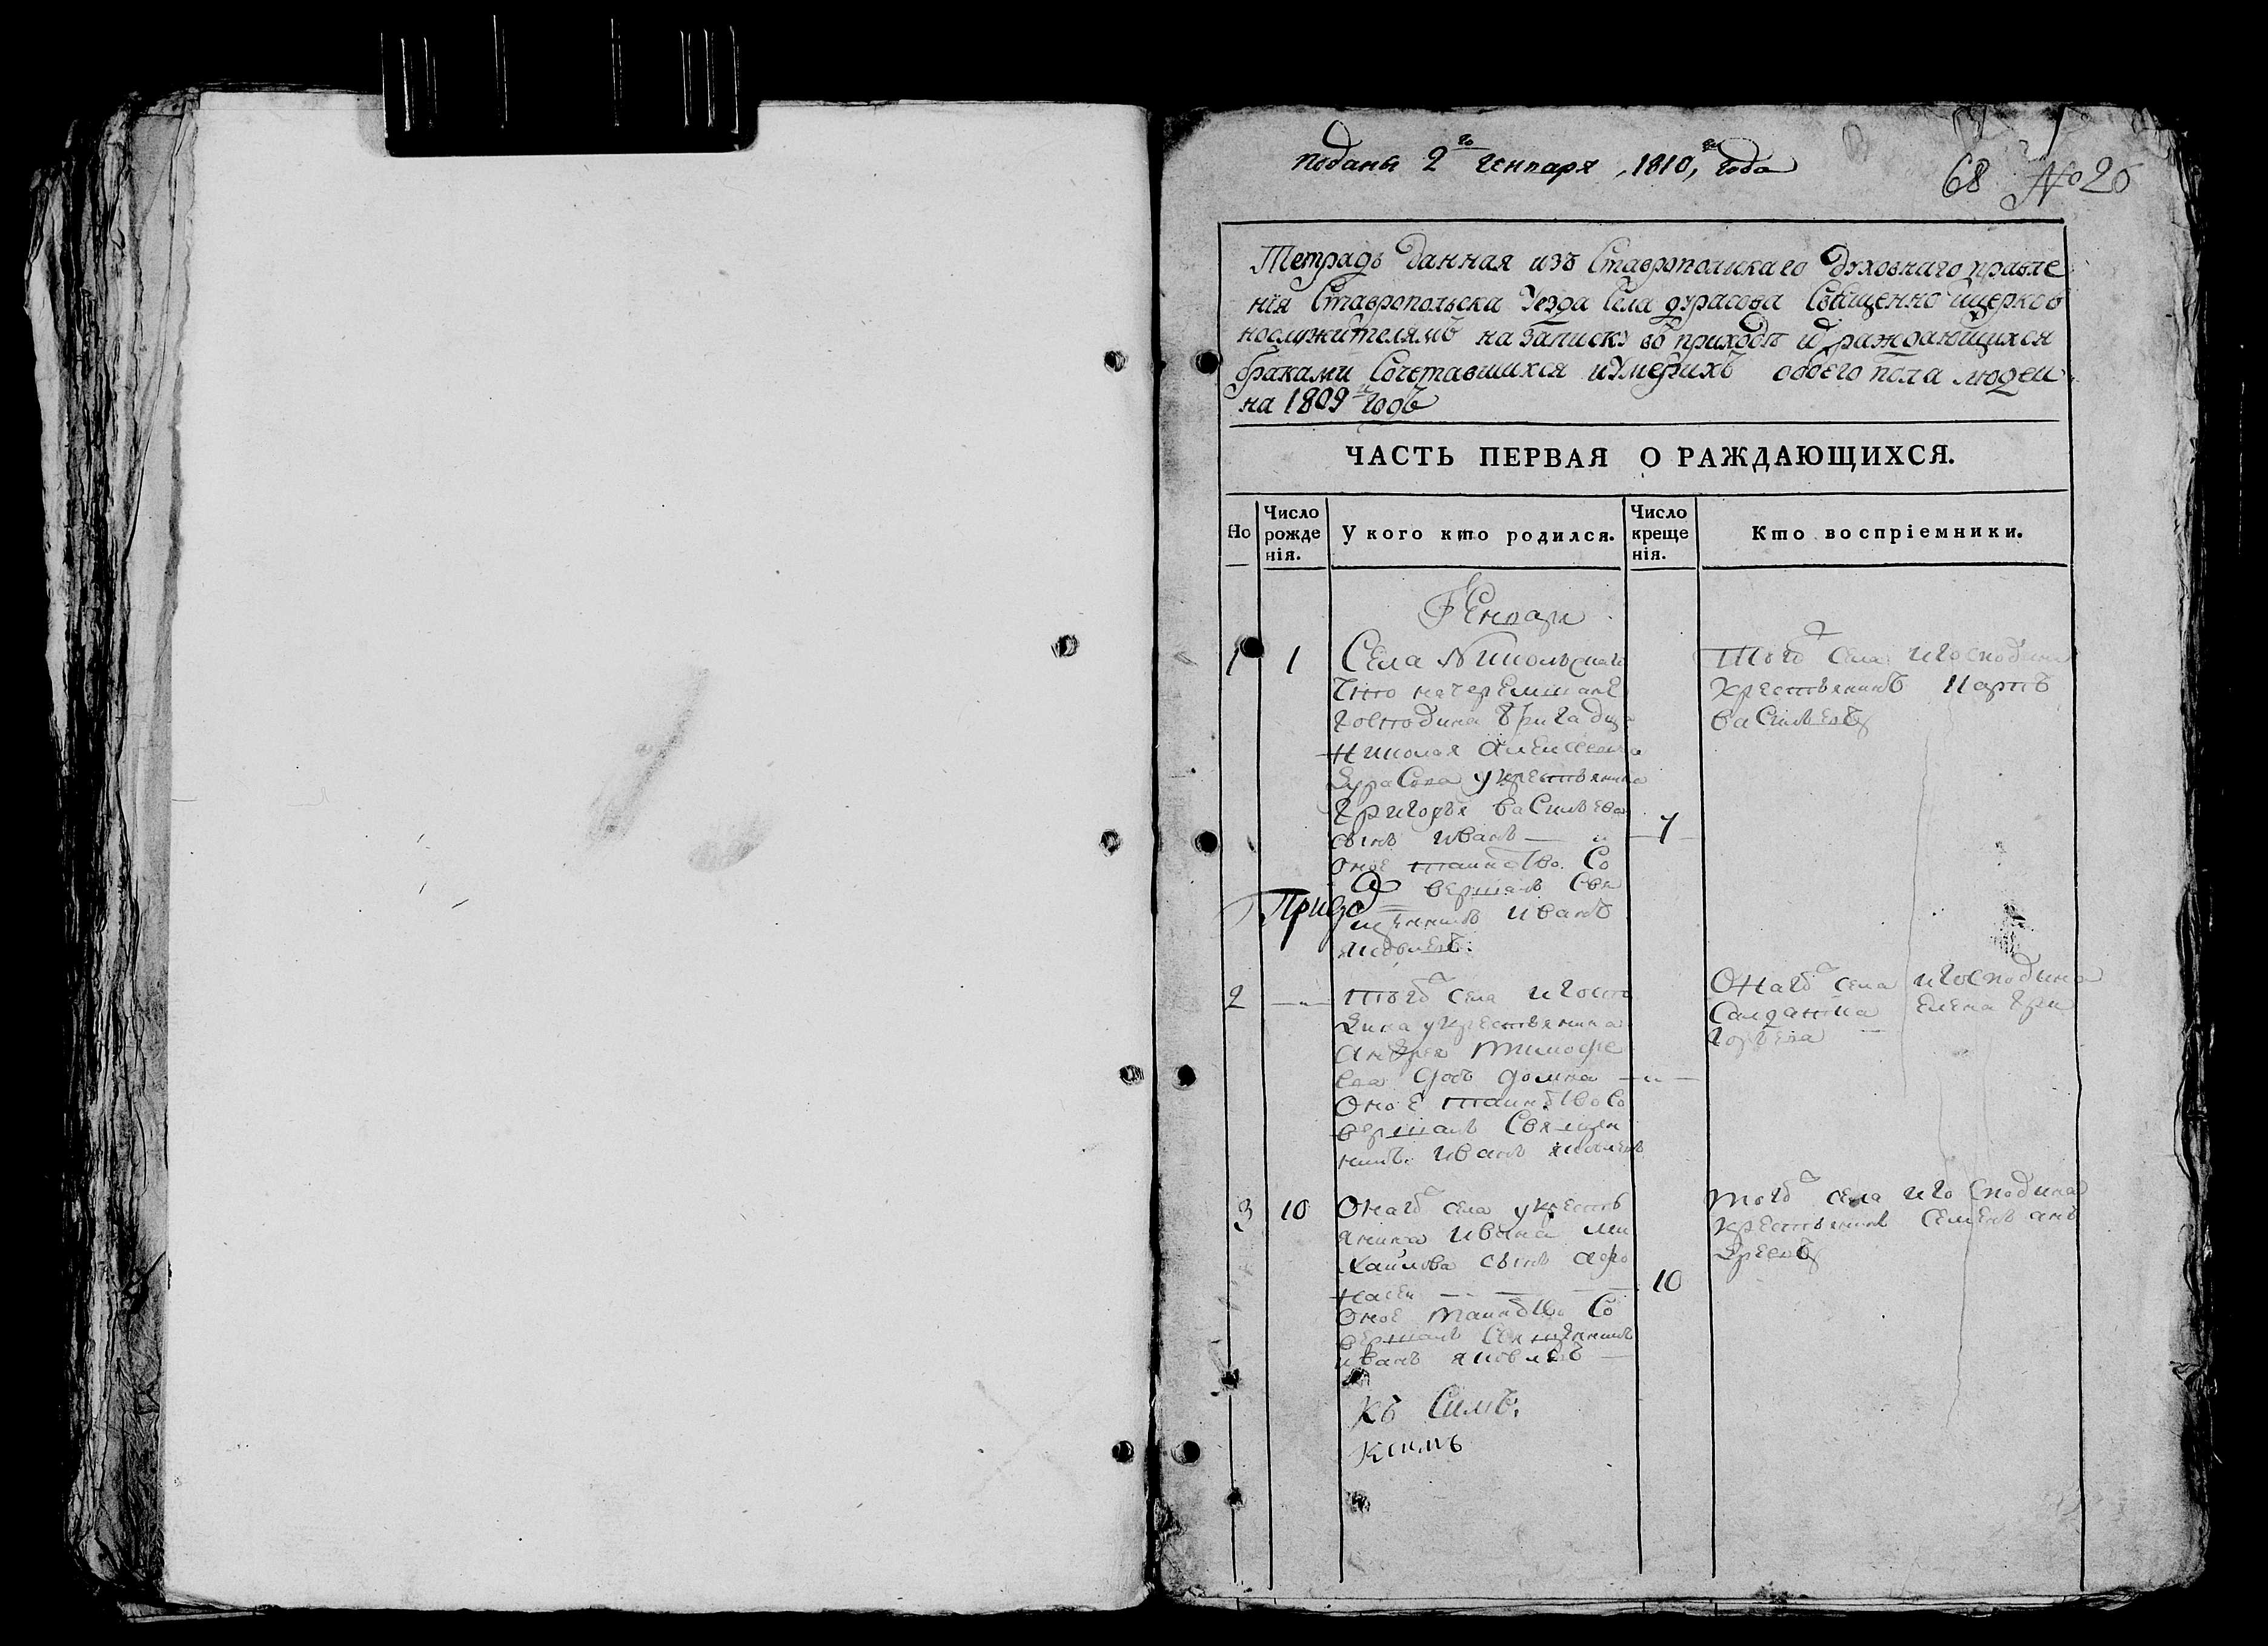 поданы 2го генваря 1810, года
68 №26
Тетрадь данная изъ Ставропольскаго духовнаго правле
нїя Ставропольска Уезда Села дурасова Священно ицерков
нослужителямъ на записку въ приходѣ ихъ раждающихся
браками Сочетавшихся иУмершихъ обоего пола людеи
на 1809й годъ
ЧАСТЬ ПЕРВАЯ О РАЖДАЮЩИХСЯ.
Но
Число рожде нія.
У кого кто родился.
Число креще нія.
Кто воспріемники.
Генваря
1
1
Села Никольскаго
что на черемшане
господина бригадира
Николая Алексеевича
дурасова укрестьянина
Григорья васильева
сынъ иванъ — и
оное таинство Со
вершалъ Свя
щенникъ иванъ
яковлевъ:
7
Того села игосподина
крестьянинъ Карпъ
васильевъ
2
того села игоспо
дина укрестьянина
андрея тимофе
ева дочь домна
Оное таинство Со
вершалъ Священ
никъ иванъ яковлевъ
Онаго села игосподина
Салдатка елена гри
горьева
3
10
Онаго села укресть
янина ивана ми
хаилова сынъ афо
насеи
Оное таинство Со
вершалъ Священникъ
иванъ яковлевъ
10
того села игосподина
крестьянинъ семенъ ан
дреевъ
Къ Симъ.
Ксимъ